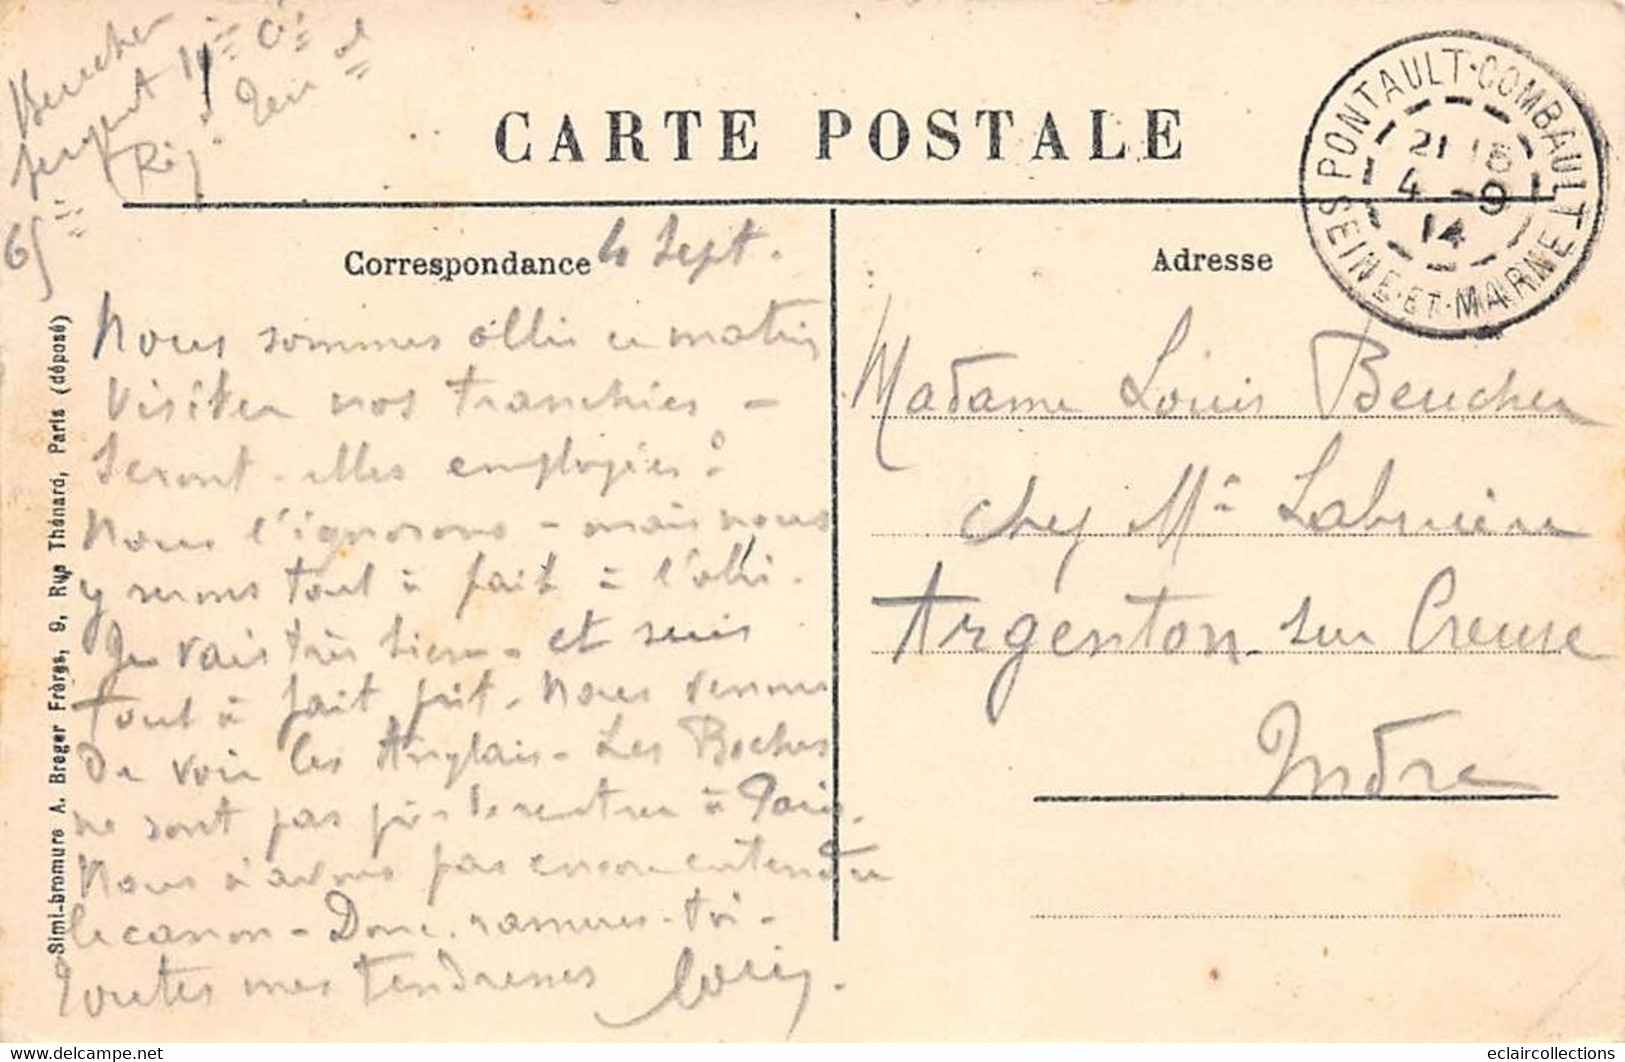 Beucher
sergent 10ème Cie
65ème Régt Terr al
CARTE POSTALE
PONTAULT-COMBAULT
SEINE-ET-MARNE
21 15
4 -9
14
Correspondance
Adresse
4 Sept.
Nous sommes allés ce matin
visiter nos tranchées -
Seront-elles employées ?
Nous l'ignorons - mais nous
y serons tout à fait à l'abri.
Je vais très bien - et suis
tout à fait prêt. Nous venons
de voir les Anglais - Les Boches
ne sont pas près de rentrer à Paris.
Nous n'avons pas encore entendu
le canon - Donc. rassures-toi -
Toutes mes tendresses Louis.
Madame Louis Beucher
chez Me Labruière
Argenton sur Creuse
Indre
Simi-bromure A. Breger Frères, 9, Rue Thénard, Paris (déposé)
eclaircollections
www.delcampe.net